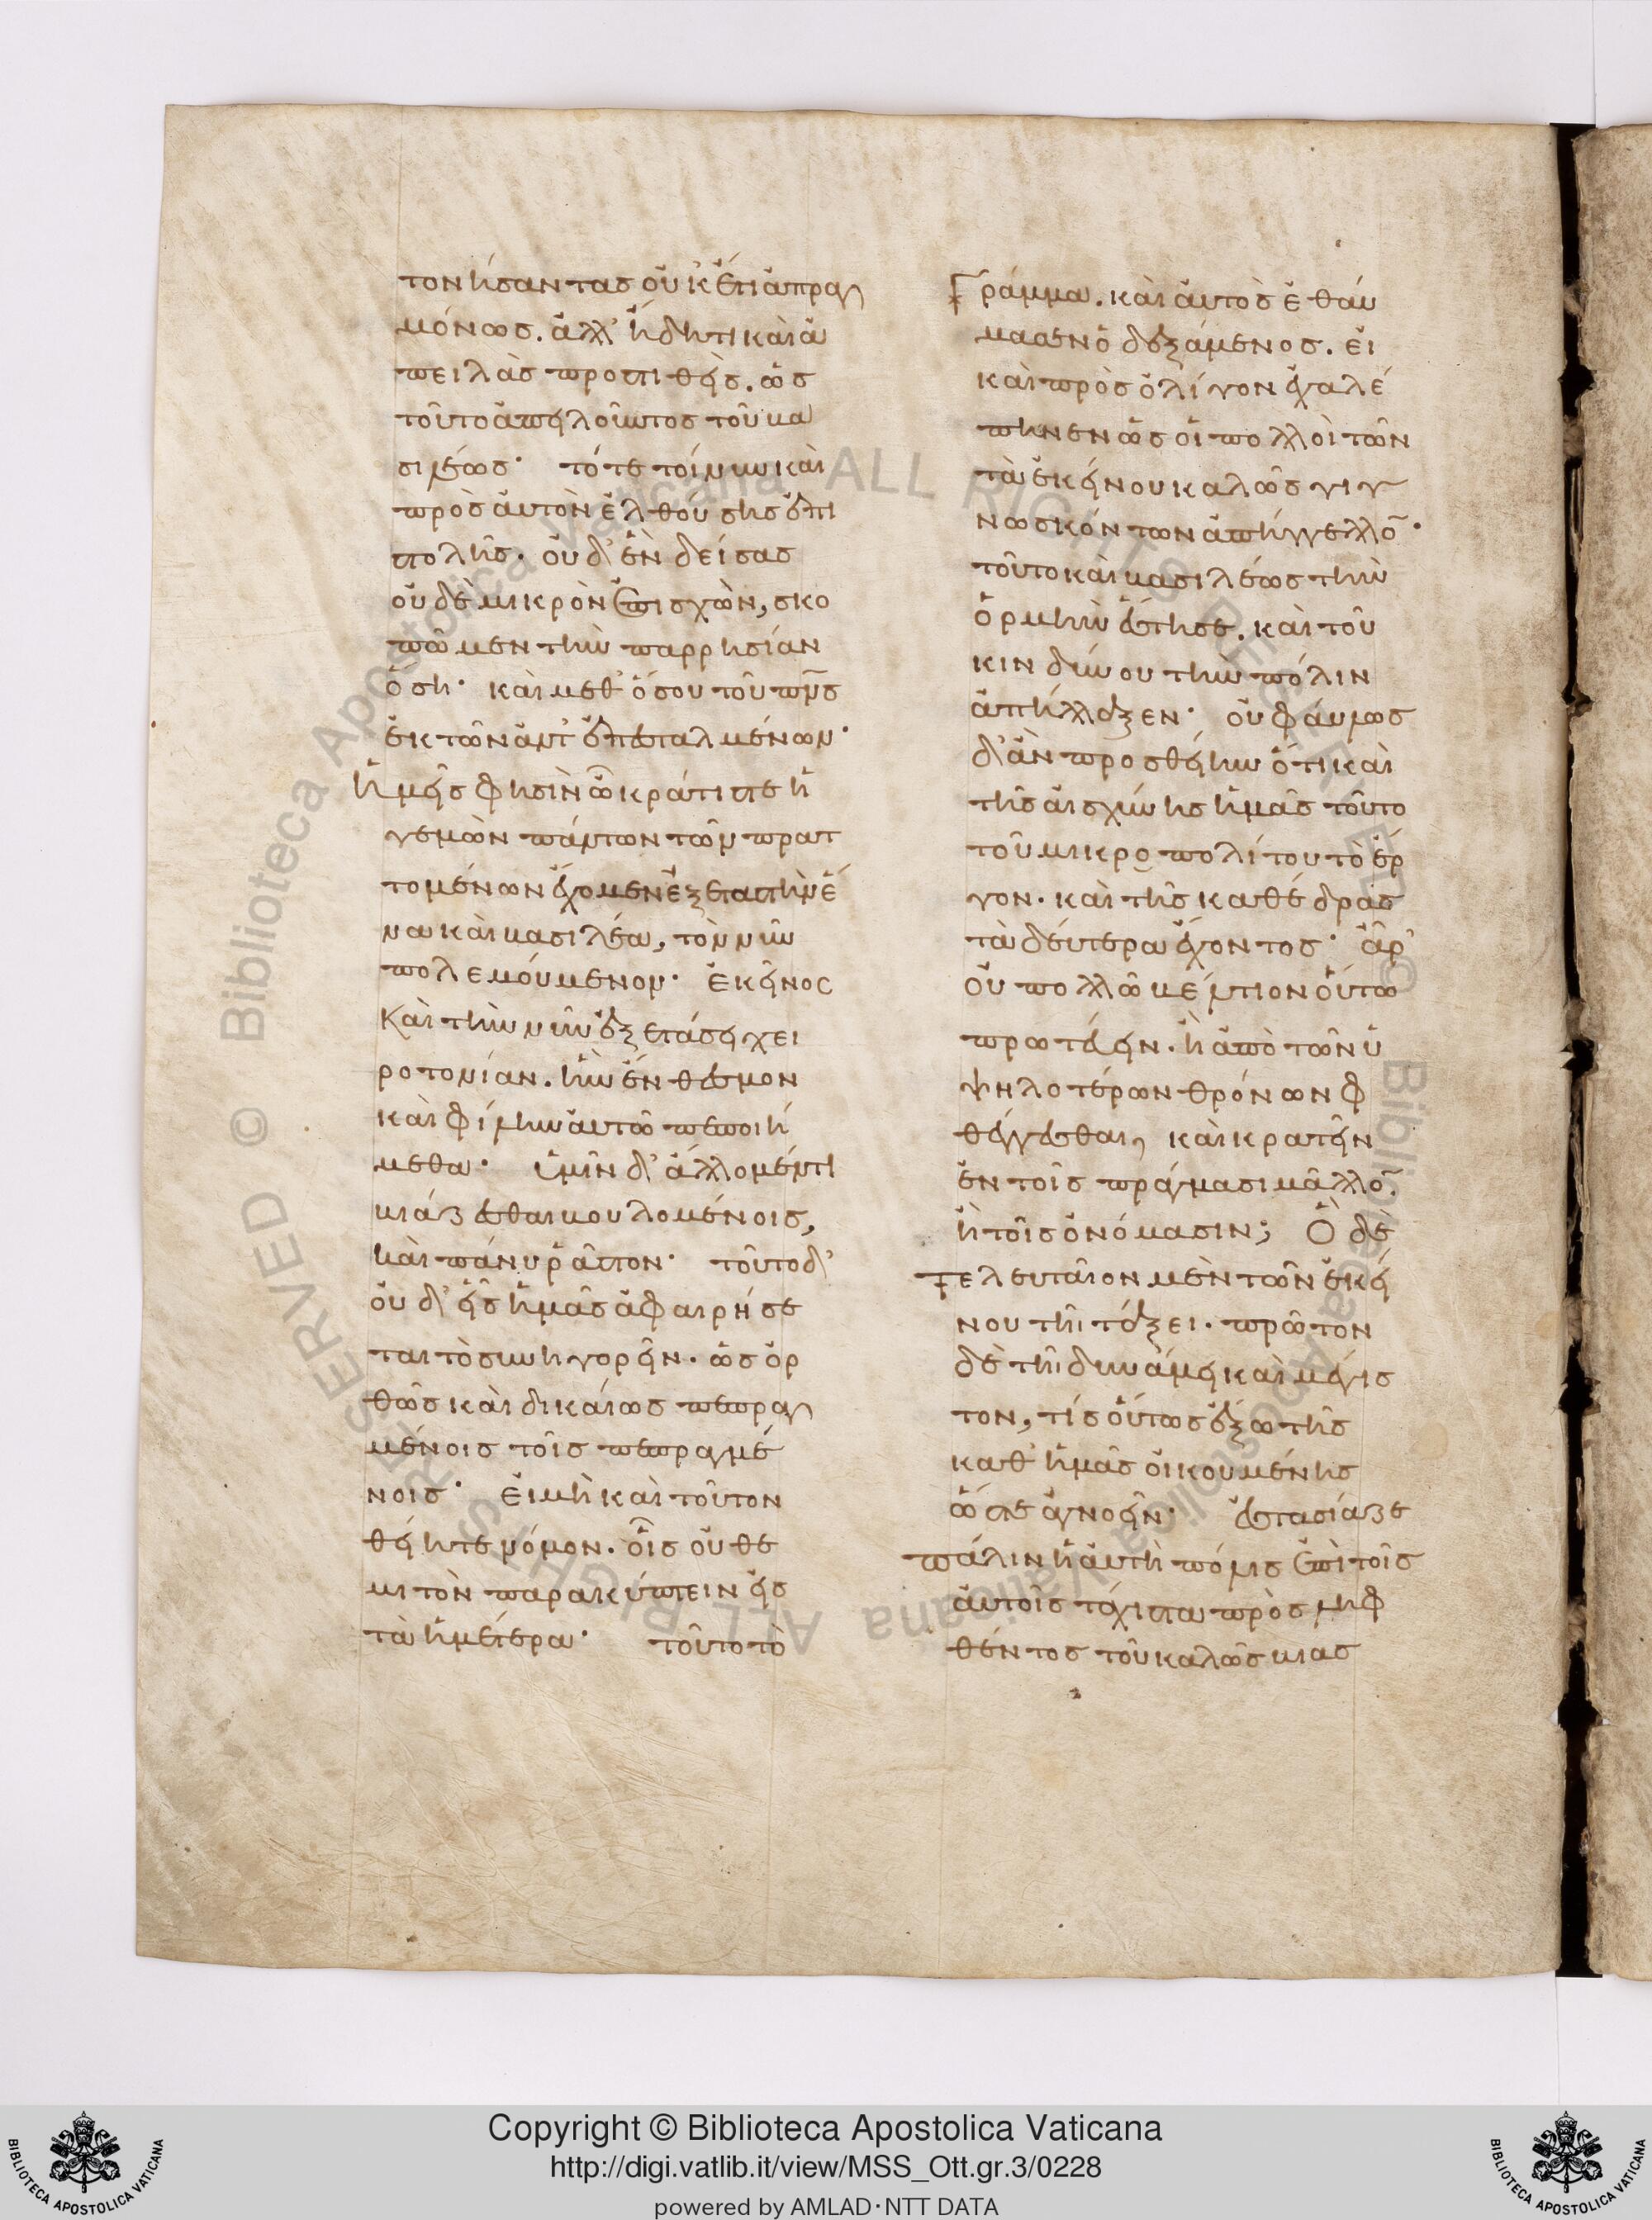 τονήσαντας οὐκέτι ἀπραγ
μόνως. ἀλλ' ἤδη τι καὶ ἀ
πειλὰς προστιθείς. ὡς
τοῦτο ἀπειλοῦντος τοῦ βα
σιλέως· τότε τοίνυν καὶ
πρὸς αὐτὸν ἐλθούσης ἐπι
στολῆς. οὐδὲν δείσας
οὐδὲ μικρὸν ἐπισχὼν, σκο
πῶμεν τὴν παρρησίαν
ὅση· καὶ μεθ' ὅσου τοῦ πνς
ἐκ τῶν ἀντεπεσταλμένων·
ἡμεῖς φησὶν ὦ κράτιστε ἡ
γεμὼν πάντων τῶν πρατ
τομένων ἔχομεν ἐξεταστὴν ἕ
να καὶ βασιλέα, τὸν νῦν
πολεμούμενον· ἐκεῖνος
καὶ τὴν νῦν ἐξετάσει χει
ροτονίαν. ἣν ἔνθεσμον
καὶ φίλην αὐτῷ πεποιή
μεθα· ὑμῖν δ' ἄλλο μέν τι
βιάζεσθαι βουλομένοις,
καὶ πάνυ ῥᾷστον· τοῦτο δ'
οὐδεὶς ἡμᾶς ἀφαιρήσε
ται τὸ συνηγορεῖν. ὡς ὀρ
θῶς καὶ δικαίως πεπραγ
μένοις τοῖς πεπραγμέ
νοις· εἰ μὴ καὶ τοῦτον
θείητε νόμον. οἷς οὐ θε
μιτὸν παρακύπτειν εἰς
τὰ ἡμέτερα· τοῦτο τὸ
γράμμα. καὶ αὐτὸς ἐθαύ
μασεν ὁ δεξάμενος. εἰ
καὶ πρὸς ὀλίγον ἐχαλέ
πηνεν ὡς οἱ πολλοὶ τῶν
τὰ ἐκείνου καλῶς γιγ
νωσκόντων ἀπήγγελλο̄·
τοῦτο καὶ βασιλέως τὴν
ὁρμὴν ἔστησε. καὶ τοῦ
κινδύνου τὴν πόλιν
ἀπήλλαξεν· οὐ φαύλως
δ' ἂν προσθείην ὅτι καὶ
τῆς αἰσχύνης ἡμᾶς τοῦτο
τοῦ μικροπολίτου τὸ ἔρ
γον. καὶ τῆς καθέδρας
τὰ δεύτερα ἔχοντος· ἆρ'
οὐ πολλῷ βέλτιον οὕτω
πρωτεύειν. ἢ ἀπὸ τῶν ὑ
ψηλοτέρων θρόνων φ
θέγγεσθαι, καὶ κρατεῖν
ἐν τοῖς πράγμασι μᾶλλο̄.
ἢ τοῖς ὀνόμασιν; Ὃ δὲ
τελευταῖον μὲν τῶν ἐκεί
νου τῇ τάξει. πρῶτον
δὲ τῇ δυνάμει καὶ μέγισ
τον, τίς οὕτως ἔξω τῆς
καθ' ἡμᾶς οἰκουμένης
ὥστε ἀγνοεῖν· ἐστασίαζε
πάλιν ἡ αὐτὴ πόλις ἐπὶ τοῖς
αὐτοῖς τάχιστα προσληφ
θέντος τοῦ καλῶς βιας
Copyright © Biblioteca Apostolica Vaticana
http://digi.vatlib.it/view/MSS_Ott.gr.3/0228
powered by AMLAD·NTT DATA